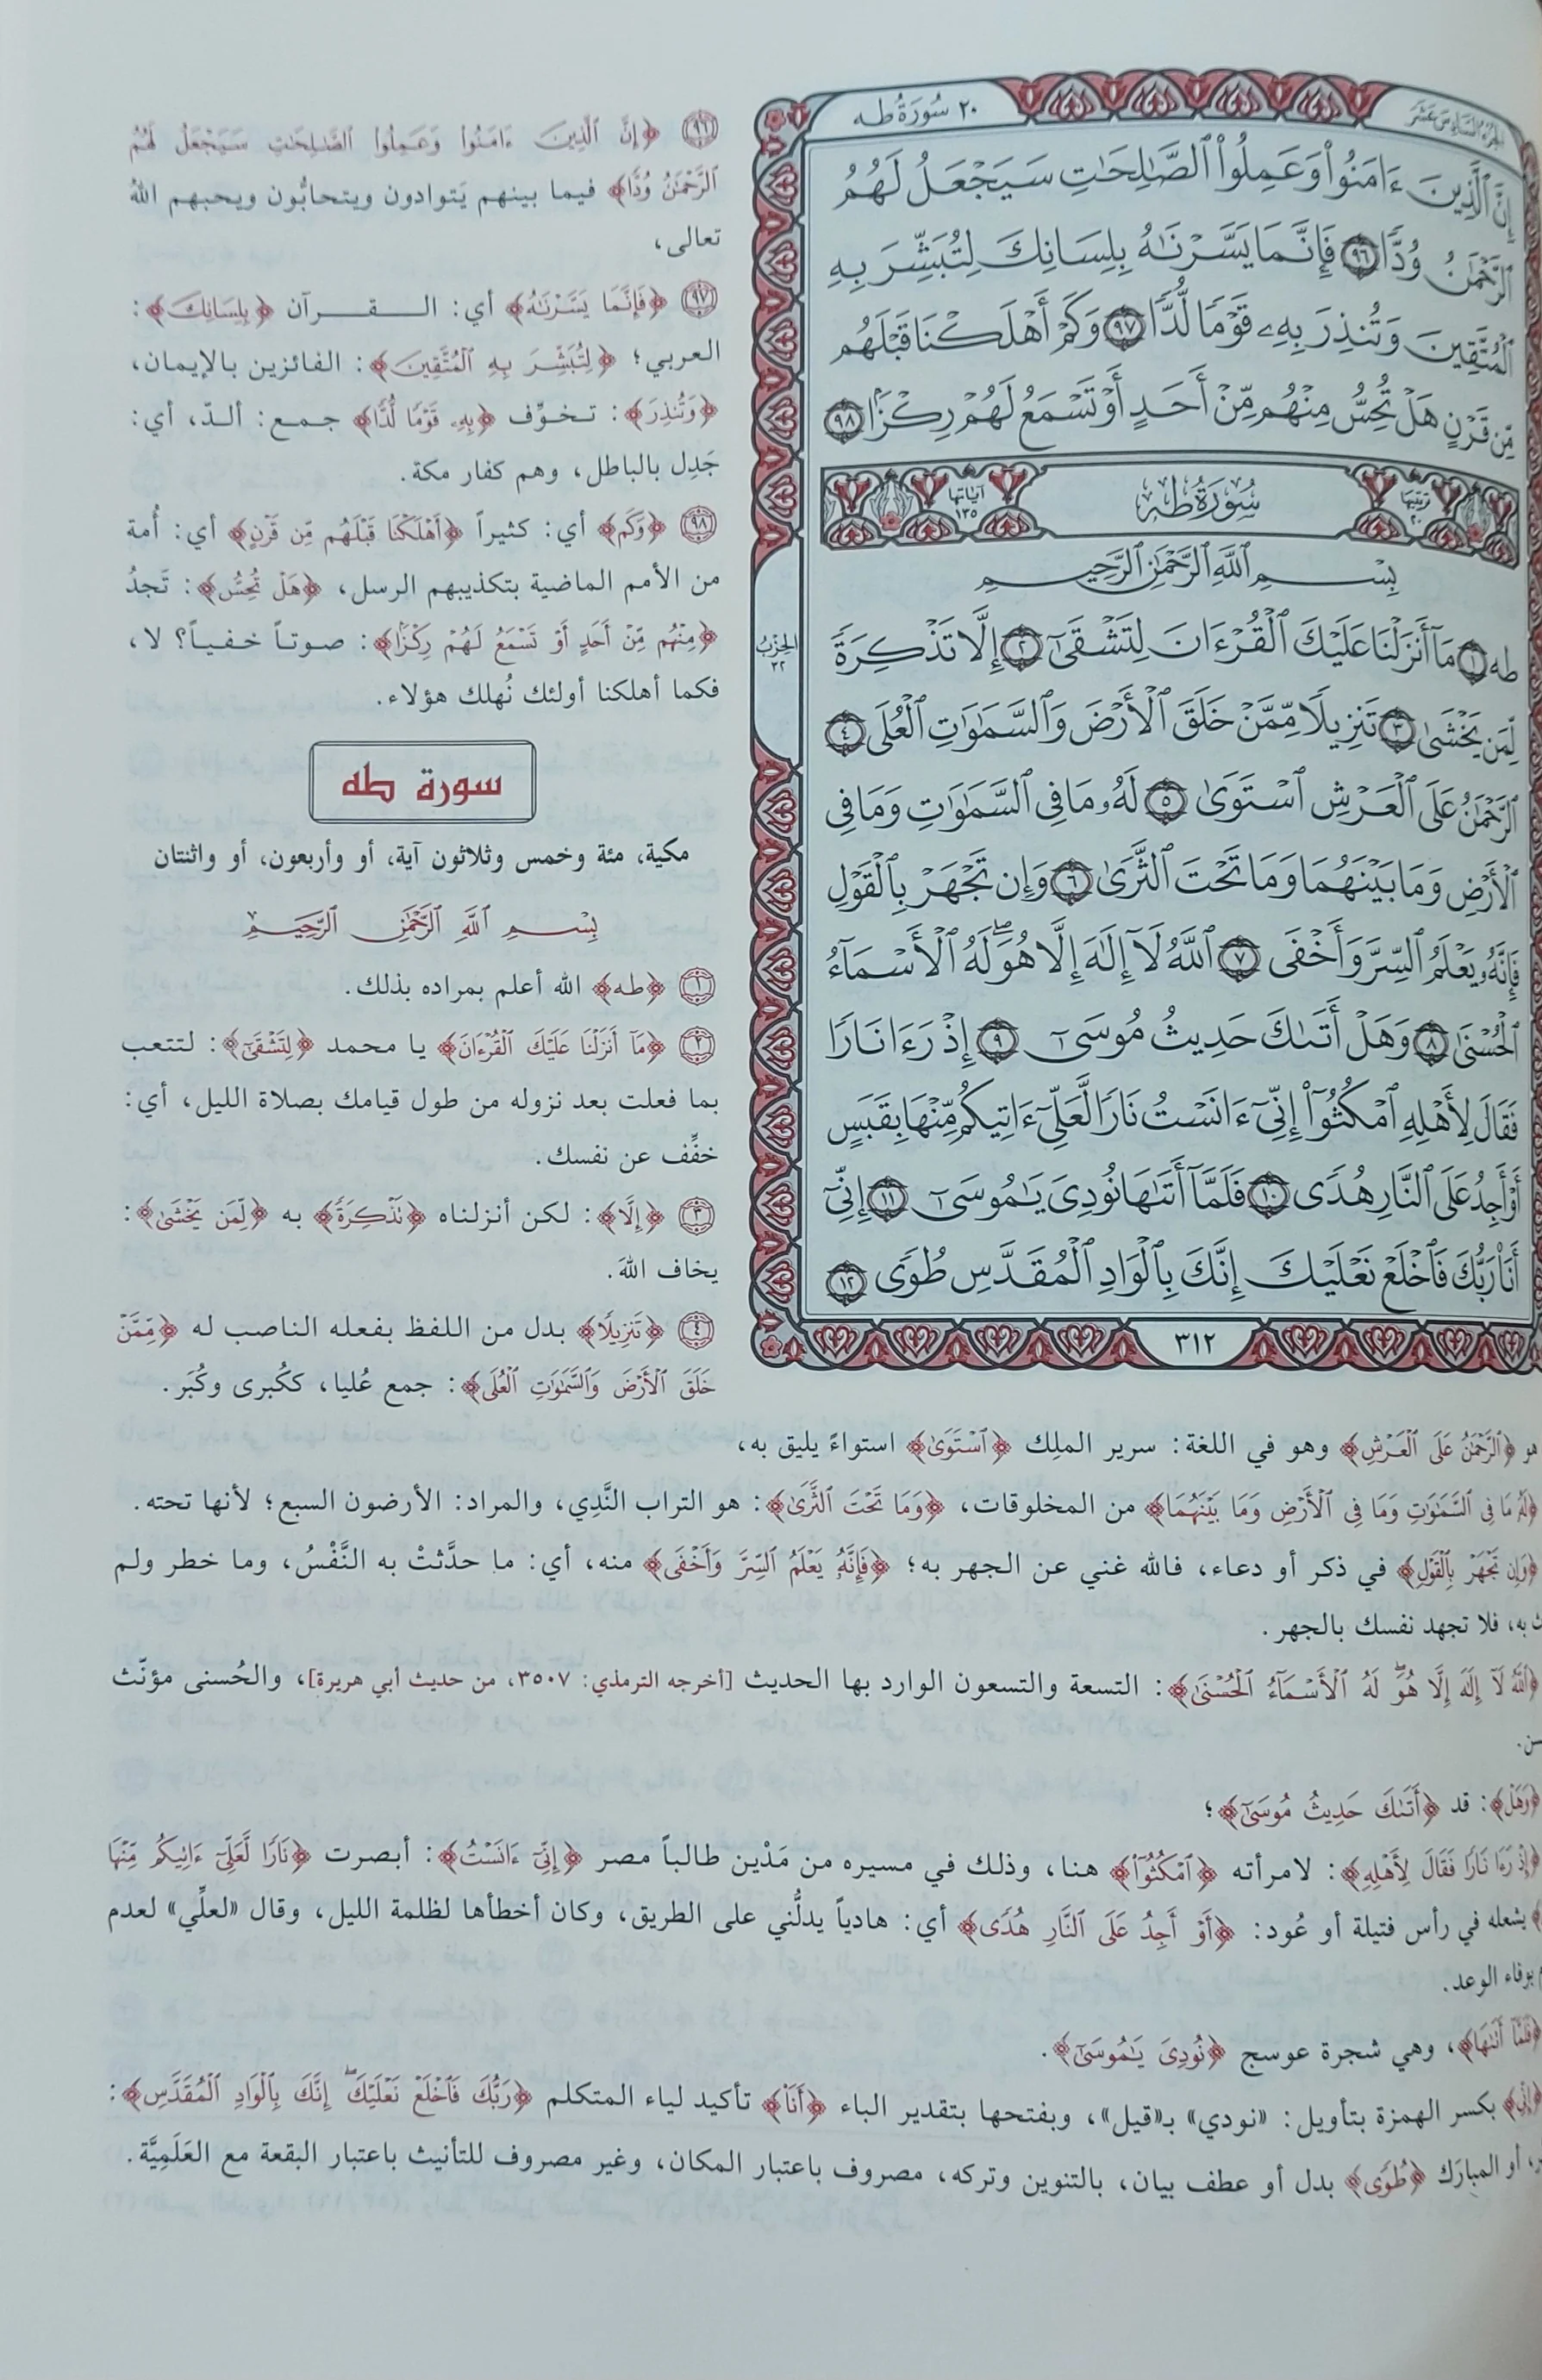 ٢٠ سُورَةُ طه
الجزء السادس عشر
إِنَّ ٱلَّذِينَ ءَامَنُوا۟ وَعَمِلُوا۟ ٱلصَّٰلِحَٰتِ سَيَجْعَلُ لَهُمُ
ٱلرَّحْمَٰنُ وُدًّا ٩٦ فَإِنَّمَا يَسَّرْنَٰهُ بِلِسَانِكَ لِتُبَشِّرَ بِهِ
ٱلْمُتَّقِينَ وَتُنذِرَ بِهِۦ قَوْمًا لُّدًّا ٩٧ وَكَمْ أَهْلَكْنَا قَبْلَهُم
مِّن قَرْنٍ هَلْ تُحِسُّ مِنْهُم مِّنْ أَحَدٍ أَوْ تَسْمَعُ لَهُمْ رِكْزًۢا ٩٨
ترتيبها ٢٠ سُورَةُ طه آياتها ١٣٥
بِسْمِ ٱللَّهِ ٱلرَّحْمَٰنِ ٱلرَّحِيمِ
طه ١ مَآ أَنزَلْنَا عَلَيْكَ ٱلْقُرْءَانَ لِتَشْقَىٰٓ ٢ إِلَّا تَذْكِرَةً
لِّمَن يَخْشَىٰ ٣ تَنزِيلًا مِّمَّنْ خَلَقَ ٱلْأَرْضَ وَٱلسَّمَٰوَٰتِ ٱلْعُلَى ٤
ٱلرَّحْمَٰنُ عَلَى ٱلْعَرْشِ ٱسْتَوَىٰ ٥ لَهُۥ مَا فِى ٱلسَّمَٰوَٰتِ وَمَا فِى
ٱلْأَرْضِ وَمَا بَيْنَهُمَا وَمَا تَحْتَ ٱلثَّرَىٰ ٦ وَإِن تَجْهَرْ بِٱلْقَوْلِ
فَإِنَّهُۥ يَعْلَمُ ٱلسِّرَّ وَأَخْفَى ٧ ٱللَّهُ لَآ إِلَٰهَ إِلَّا هُوَۖ لَهُ ٱلْأَسْمَآءُ
ٱلْحُسْنَىٰ ٨ وَهَلْ أَتَىٰكَ حَدِيثُ مُوسَىٰٓ ٩ إِذْ رَءَا نَارًا
فَقَالَ لِأَهْلِهِ ٱمْكُثُوٓا۟ إِنِّىٓ ءَانَسْتُ نَارًا لَّعَلِّىٓ ءَاتِيكُم مِّنْهَا بِقَبَسٍ
أَوْ أَجِدُ عَلَى ٱلنَّارِ هُدًى ١٠ فَلَمَّآ أَتَىٰهَا نُودِىَ يَٰمُوسَىٰٓ ١١ إِنِّىٓ
أَنَا۠ رَبُّكَ فَٱخْلَعْ نَعْلَيْكَ إِنَّكَ بِٱلْوَادِ ٱلْمُقَدَّسِ طُوًى ١٢
الحزب ٣٢
٣١٢
٩٦ ﴿إِنَّ ٱلَّذِينَ ءَامَنُوا۟ وَعَمِلُوا۟ ٱلصَّٰلِحَٰتِ سَيَجْعَلُ لَهُمُ
ٱلرَّحْمَٰنُ وُدًّا﴾ فيما بينهم يَتوادون ويتحابُّون ويحبهم اللهُ
تعالى،
٩٧ ﴿فَإِنَّمَا يَسَّرْنَٰهُ﴾ أي: القرآن ﴿بِلِسَانِكَ﴾:
العربي؛ ﴿لِتُبَشِّرَ بِهِ ٱلْمُتَّقِينَ﴾: الفائزين بالإيمان،
﴿وَتُنذِرَ﴾: تخوِّف ﴿بِهِۦ قَوْمًا لُّدًّا﴾ جمع: ألدّ، أي:
جَدِل بالباطل، وهم كفار مكة.
٩٨ ﴿وَكَمْ﴾ أي: كثيراً ﴿أَهْلَكْنَا قَبْلَهُم مِّن قَرْنٍ﴾ أي: أُمة
من الأمم الماضية بتكذيبهم الرسل، ﴿هَلْ تُحِسُّ﴾: تَجدُ
﴿مِنْهُم مِّنْ أَحَدٍ أَوْ تَسْمَعُ لَهُمْ رِكْزًا﴾: صوتاً خفياً؟ لا،
فكما أهلكنا أولئك نُهلك هؤلاء.
سورة طه
مكية، مئة وخمس وثلاثون آية، أو وأربعون، أو واثنتان
بِسْمِ ٱللَّهِ ٱلرَّحْمَٰنِ ٱلرَّحِيمِ
١ ﴿طه﴾ الله أعلم بمراده بذلك.
٢ ﴿مَآ أَنزَلْنَا عَلَيْكَ ٱلْقُرْءَانَ﴾ يا محمد ﴿لِتَشْقَىٰٓ﴾: لتتعب
بما فعلت بعد نزوله من طول قيامك بصلاة الليل، أي:
خفِّف عن نفسك.
٣ ﴿إِلَّا﴾: لكن أنزلناه ﴿تَذْكِرَةً﴾ به ﴿لِّمَن يَخْشَىٰ﴾:
يخاف اللهَ.
٤ ﴿تَنزِيلًا﴾ بدل من اللفظ بفعله الناصب له ﴿مِّمَّنْ
خَلَقَ ٱلْأَرْضَ وَٱلسَّمَٰوَٰتِ ٱلْعُلَى﴾: جمع عُليا، ككُبرى وكُبَر.
هو ﴿ٱلرَّحْمَٰنُ عَلَى ٱلْعَرْشِ﴾ وهو في اللغة: سرير الملِك ﴿ٱسْتَوَىٰ﴾ استواءً يليق به،
﴿لَهُۥ مَا فِى ٱلسَّمَٰوَٰتِ وَمَا فِى ٱلْأَرْضِ وَمَا بَيْنَهُمَا﴾ من المخلوقات، ﴿وَمَا تَحْتَ ٱلثَّرَىٰ﴾: هو التراب النَّدِي، والمراد: الأرضون السبع؛ لأنها تحته.
﴿وَإِن تَجْهَرْ بِٱلْقَوْلِ﴾ في ذكر أو دعاء، فالله غني عن الجهر به؛ ﴿فَإِنَّهُۥ يَعْلَمُ ٱلسِّرَّ وَأَخْفَى﴾ منه، أي: ما حدَّثتْ به النَّفْسُ، وما خطر ولم
به، فلا تجهد نفسك بالجهر.
﴿ٱللَّهُ لَآ إِلَٰهَ إِلَّا هُوَۖ لَهُ ٱلْأَسْمَآءُ ٱلْحُسْنَىٰ﴾: التسعة والتسعون الوارد بها الحديث [أخرجه الترمذي: ٣٥٠٧، من حديث أبي هريرة]، والحُسنى مؤنّث
﴿وَهَلْ﴾: قد ﴿أَتَىٰكَ حَدِيثُ مُوسَىٰٓ﴾؛
﴿إِذْ رَءَا نَارًا فَقَالَ لِأَهْلِهِ﴾: لامرأته ﴿ٱمْكُثُوٓا۟﴾ هنا، وذلك في مسيره من مَدْين طالباً مصر ﴿إِنِّىٓ ءَانَسْتُ﴾: أبصرت ﴿نَارًا لَّعَلِّىٓ ءَاتِيكُم مِّنْهَا
يشعله في رأس فتيلة أو عُود: ﴿أَوْ أَجِدُ عَلَى ٱلنَّارِ هُدًى﴾ أي: هادياً يدلُّني على الطريق، وكان أخطأها لظلمة الليل، وقال «لعلِّي» لعدم
بوفاء الوعد.
﴿فَلَمَّآ أَتَىٰهَا﴾، وهي شجرة عوسج ﴿نُودِىَ يَٰمُوسَىٰٓ﴾.
﴿إِنِّىٓ﴾ بكسر الهمزة بتأويل: «نودي» بـ«قيل»، وبفتحها بتقدير الباء ﴿أَنَا۠﴾ تأكيد لياء المتكلم ﴿رَبُّكَ فَٱخْلَعْ نَعْلَيْكَۖ إِنَّكَ بِٱلْوَادِ ٱلْمُقَدَّسِ﴾:
، أو المبارَك ﴿طُوًى﴾ بدل أو عطف بيان، بالتنوين وتركه، مصروف باعتبار المكان، وغير مصروف للتأنيث باعتبار البقعة مع العَلَمِيَّة.